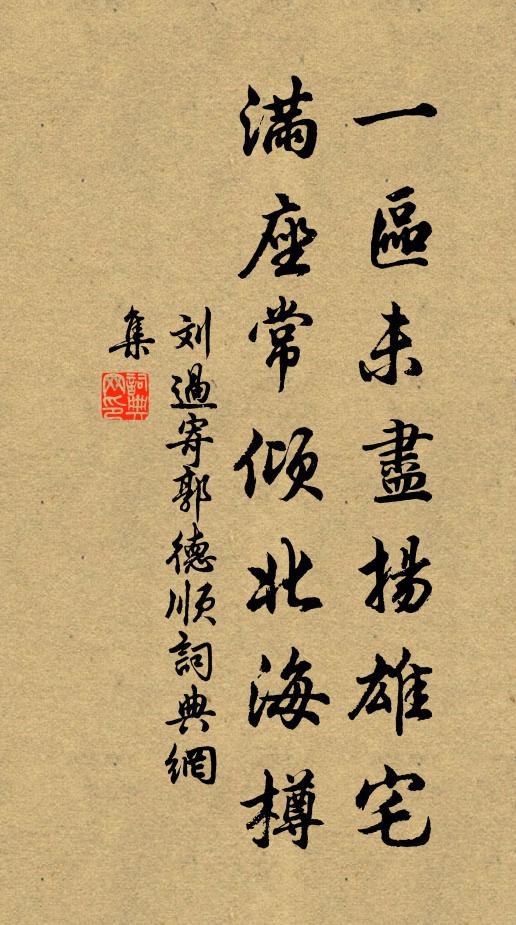 一區未盡揚雄宅
滿座常傾北海樽
刘過寄郭德順詞典網
集
詞典網印